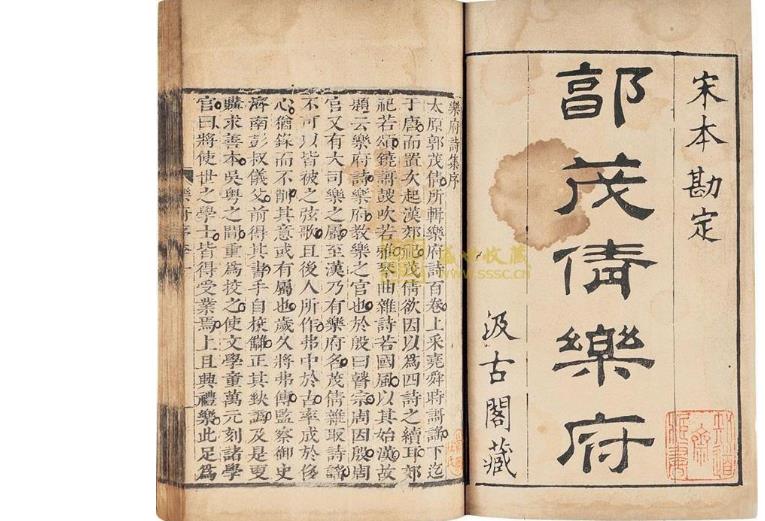 宋本勘定
郭茂倩樂府
汲古閣藏
樂府詩集序
太原郭茂倩所輯樂府詩百卷上采堯舜時謌謠下迄
于唐而置次起漢郊祀茂倩欲因以為四詩之續耳郊
祀若頌鐃謌鼓吹若雅琴曲雜詩若國風以其始漢故
題云樂府詩樂府教樂之官也於殷曰瞽宗周因殷周
官又有大司樂之屬至漢乃有樂府名茂倩雜取詩謠
不可以皆被之弦歌且後人所作弗中於古率成於侈
心猶錄而不削其意或有屬也歲久將弗傳監察御史
濟南彭叔儀父前得其書手自校讎正其缺譌及是更
購求善本吳粵之間重為校之使文學童萬元刻諸學
官曰將使世之學士皆得受業焉上且興禮樂此足為
樂府序
盛世收藏
www.sssc.cn